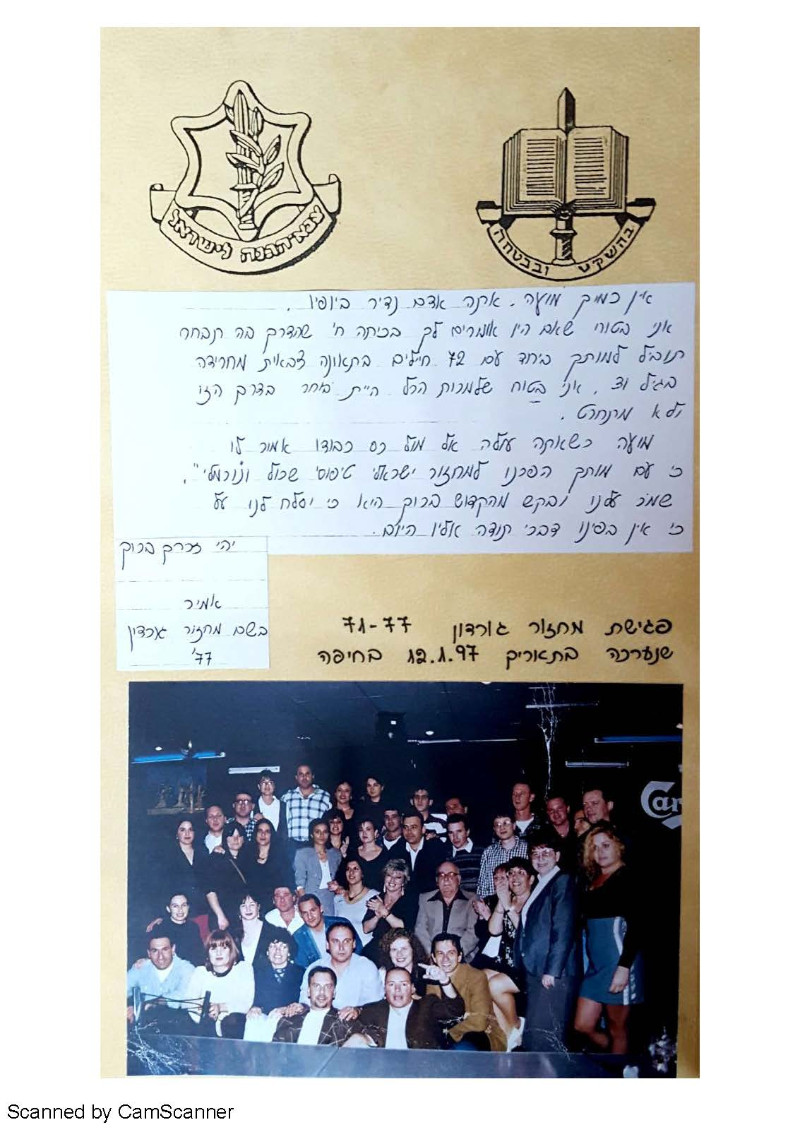 צבא הגנה לישראל
בהשקט ובבטחה
אין כמוך מועה. אתה אדם נדיר ביופיו.
אני בטוח שאם היו אומרים לך בכיתה ח' שהדרך בה תבחר
תוביל למותך ביחד עם 72 חיילים בתאונה צבאית מחרידה
בגיל, אני בטוח שלמרות הכל היית בוחר בדרך הזו
ולא מתחרט.
מועה כשאתה עולה אל מול כס כבודו אמור לו
כי עם מותך הפכנו למחזור ישראלי טיפוסי שכול ונורמלי".
שמור עלנו ובקש מהקדוש ברוך הוא כי יסלח לנו על
כי אין בפינו דברי תודה אליו היום.
יהי זכרך ברוך
אמיר
בשם מחזור גורדון
77'
פגישת מחזור גורדון 71-77
שנערכה בתאריך 12.1.97 בחיפה
Car
Scanned by CamScanner